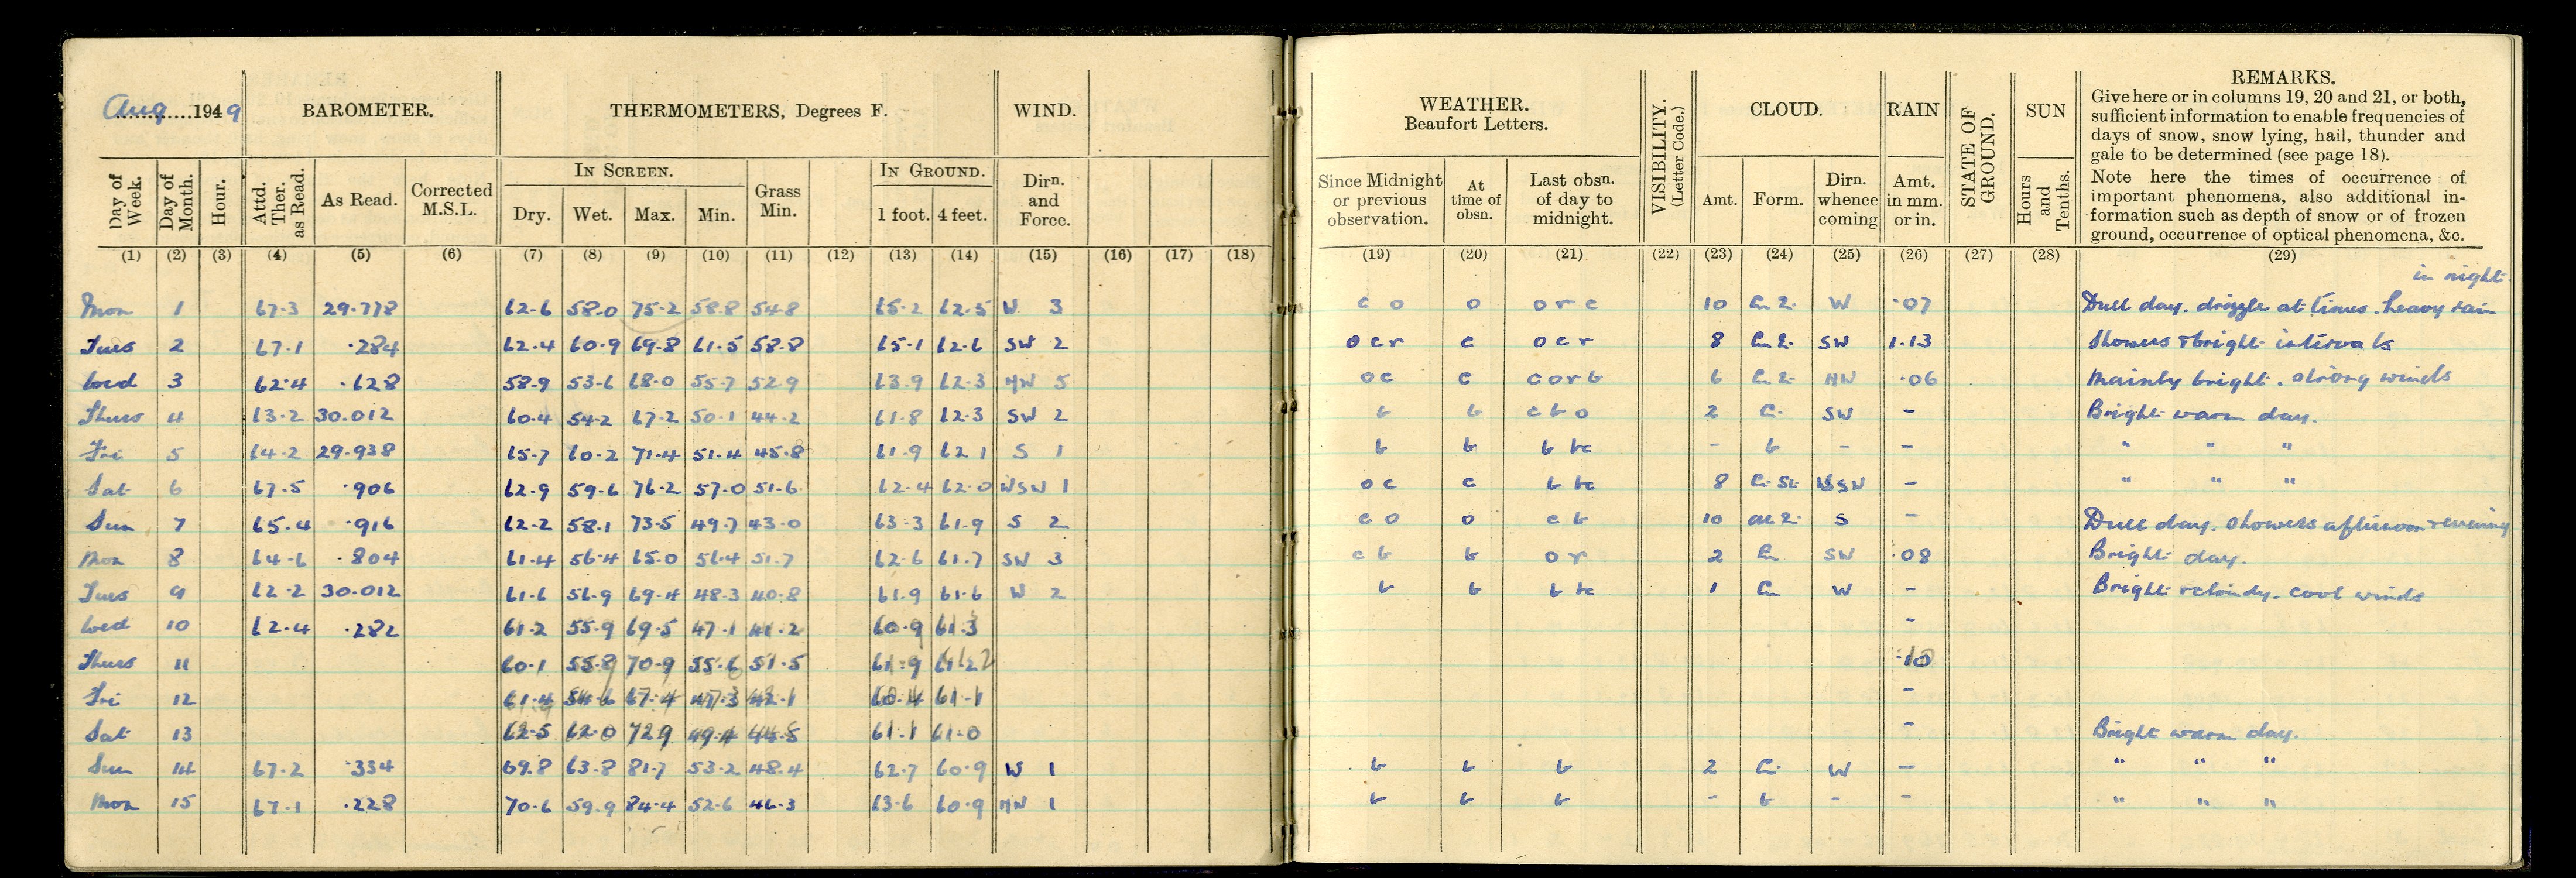 Aug 1949 BAROMETER. THERMOMETERS, Degrees F. WIND.
Day of Week. Day of Month. Hour. Attd. Ther. as Read. As Read. Corrected M.S.L. IN SCREEN. Dry. Wet. Max. Min. Grass Min. IN GROUND. 1 foot. 4 feet. Dirn. and Force.
(1) (2) (3) (4) (5) (6) (7) (8) (9) (10) (11) (12) (13) (14) (15) (16) (17) (18)
Mon 1 67.3 29.778 62.6 58.0 75.2 58.8 54.8 65.2 62.5 W 3
Tues 2 67.1 .284 62.4 60.9 69.8 61.5 58.8 65.1 62.6 SW 2
Wed 3 62.4 .628 58.9 53.6 68.0 55.7 52.9 63.9 62.3 NW 5
Thurs 4 63.2 30.012 60.4 54.2 67.2 50.1 44.2 61.8 62.3 SW 2
Fri 5 64.2 29.938 65.7 60.2 71.4 51.4 45.8 61.9 62.1 S 1
Sat 6 67.5 .906 62.9 59.6 76.2 57.0 51.6 62.4 62.0 WSW 1
Sun 7 65.4 .916 62.2 58.1 73.5 49.7 43.0 63.3 61.9 S 2
Mon 8 64.6 .804 61.4 56.4 65.0 56.4 51.7 62.6 61.7 SW 3
Tues 9 62.2 30.012 61.6 56.9 69.4 48.3 40.8 61.9 61.6 W 2
Wed 10 62.4 .282 61.2 55.9 69.5 47.1 41.2 60.9 61.3
Thurs 11 60.1 70.9 51.5 61.9
Fri 12 61.4 67.4 47.3 42.1 60.4 61.1
Sat 13 62.5 62.0 72.9 49.4 44.5 61.1 61.0
Sun 14 67.2 .334 69.8 63.8 81.7 53.2 48.4 62.7 60.9 W 1
Mon 15 67.1 .228 70.6 59.9 84.4 52.6 46.3 63.6 60.9 NW 1
WEATHER. Beaufort Letters. VISIBILITY. (Letter Code.) CLOUD. RAIN STATE OF GROUND. SUN REMARKS.
Since Midnight or previous observation. At time of obsn. Last obsn. of day to midnight. Amt. Form. Dirn. whence coming Amt. in mm. or in. Hours and Tenths.
Give here or in columns 19, 20 and 21, or both,
sufficient information to enable frequencies of
days of snow, snow lying, hail, thunder and
gale to be determined (see page 18).
Note here the times of occurrence of
important phenomena, also additional in-
formation such as depth of snow or of frozen
ground, occurrence of optical phenomena, &c.
(19) (20) (21) (22) (23) (24) (25) (26) (27) (28) (29)
in night.
c o o o r c 10 W .07 Dull day. drizzle at times. heavy rain
o c r c o c r 8 SW 1.13 Showers & bright intervals
o c c c o r b 6 NW .06 Mainly bright. strong winds
b b c b o 2 SW - Bright warm day.
b b b bc - b - - " " "
o c c b bc 8 - " " "
c o o c b 10 S - Dull day. Showers afternoon & evening
c b b o r 2 SW .08 Bright day.
b b b bc 1 W - Bright & cloudy. cool winds
-
.10
-
- Bright warm day.
b b b 2 W - " " "
b b b - b - - " " "